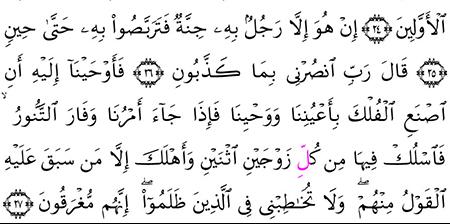 ٱلْأَوَّلِينَ ﴿٢٤﴾ إِنْ هُوَ إِلَّا رَجُلٌۢ بِهِۦ جِنَّةٌ فَتَرَبَّصُوا۟ بِهِۦ حَتَّىٰ حِينٍ
﴿٢٥﴾ قَالَ رَبِّ ٱنصُرْنِى بِمَا كَذَّبُونِ ﴿٢٦﴾ فَأَوْحَيْنَآ إِلَيْهِ أَنِ
ٱصْنَعِ ٱلْفُلْكَ بِأَعْيُنِنَا وَوَحْيِنَا فَإِذَا جَآءَ أَمْرُنَا وَفَارَ ٱلتَّنُّورُ ۙ
فَٱسْلُكْ فِيهَا مِن كُلٍّ زَوْجَيْنِ ٱثْنَيْنِ وَأَهْلَكَ إِلَّا مَن سَبَقَ عَلَيْهِ
ٱلْقَوْلُ مِنْهُمْ ۖ وَلَا تُخَـٰطِبْنِى فِى ٱلَّذِينَ ظَلَمُوٓا۟ ۖ إِنَّهُم مُّغْرَقُونَ ﴿٢٧﴾